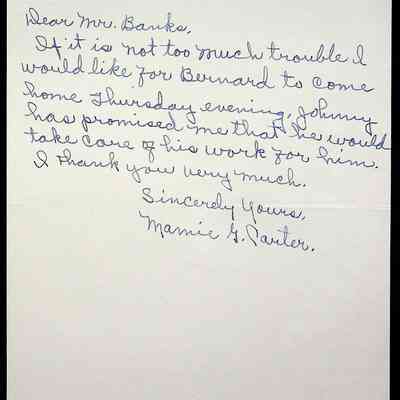 Dear Mr. Banks,
If it is not too much trouble I
would like for Bernard to come
home Thursday evening, Johnny
has promised me that he would
take care of his work for him.
I thank you very much.
Sincerely Yours,
Mamie G. Carter.